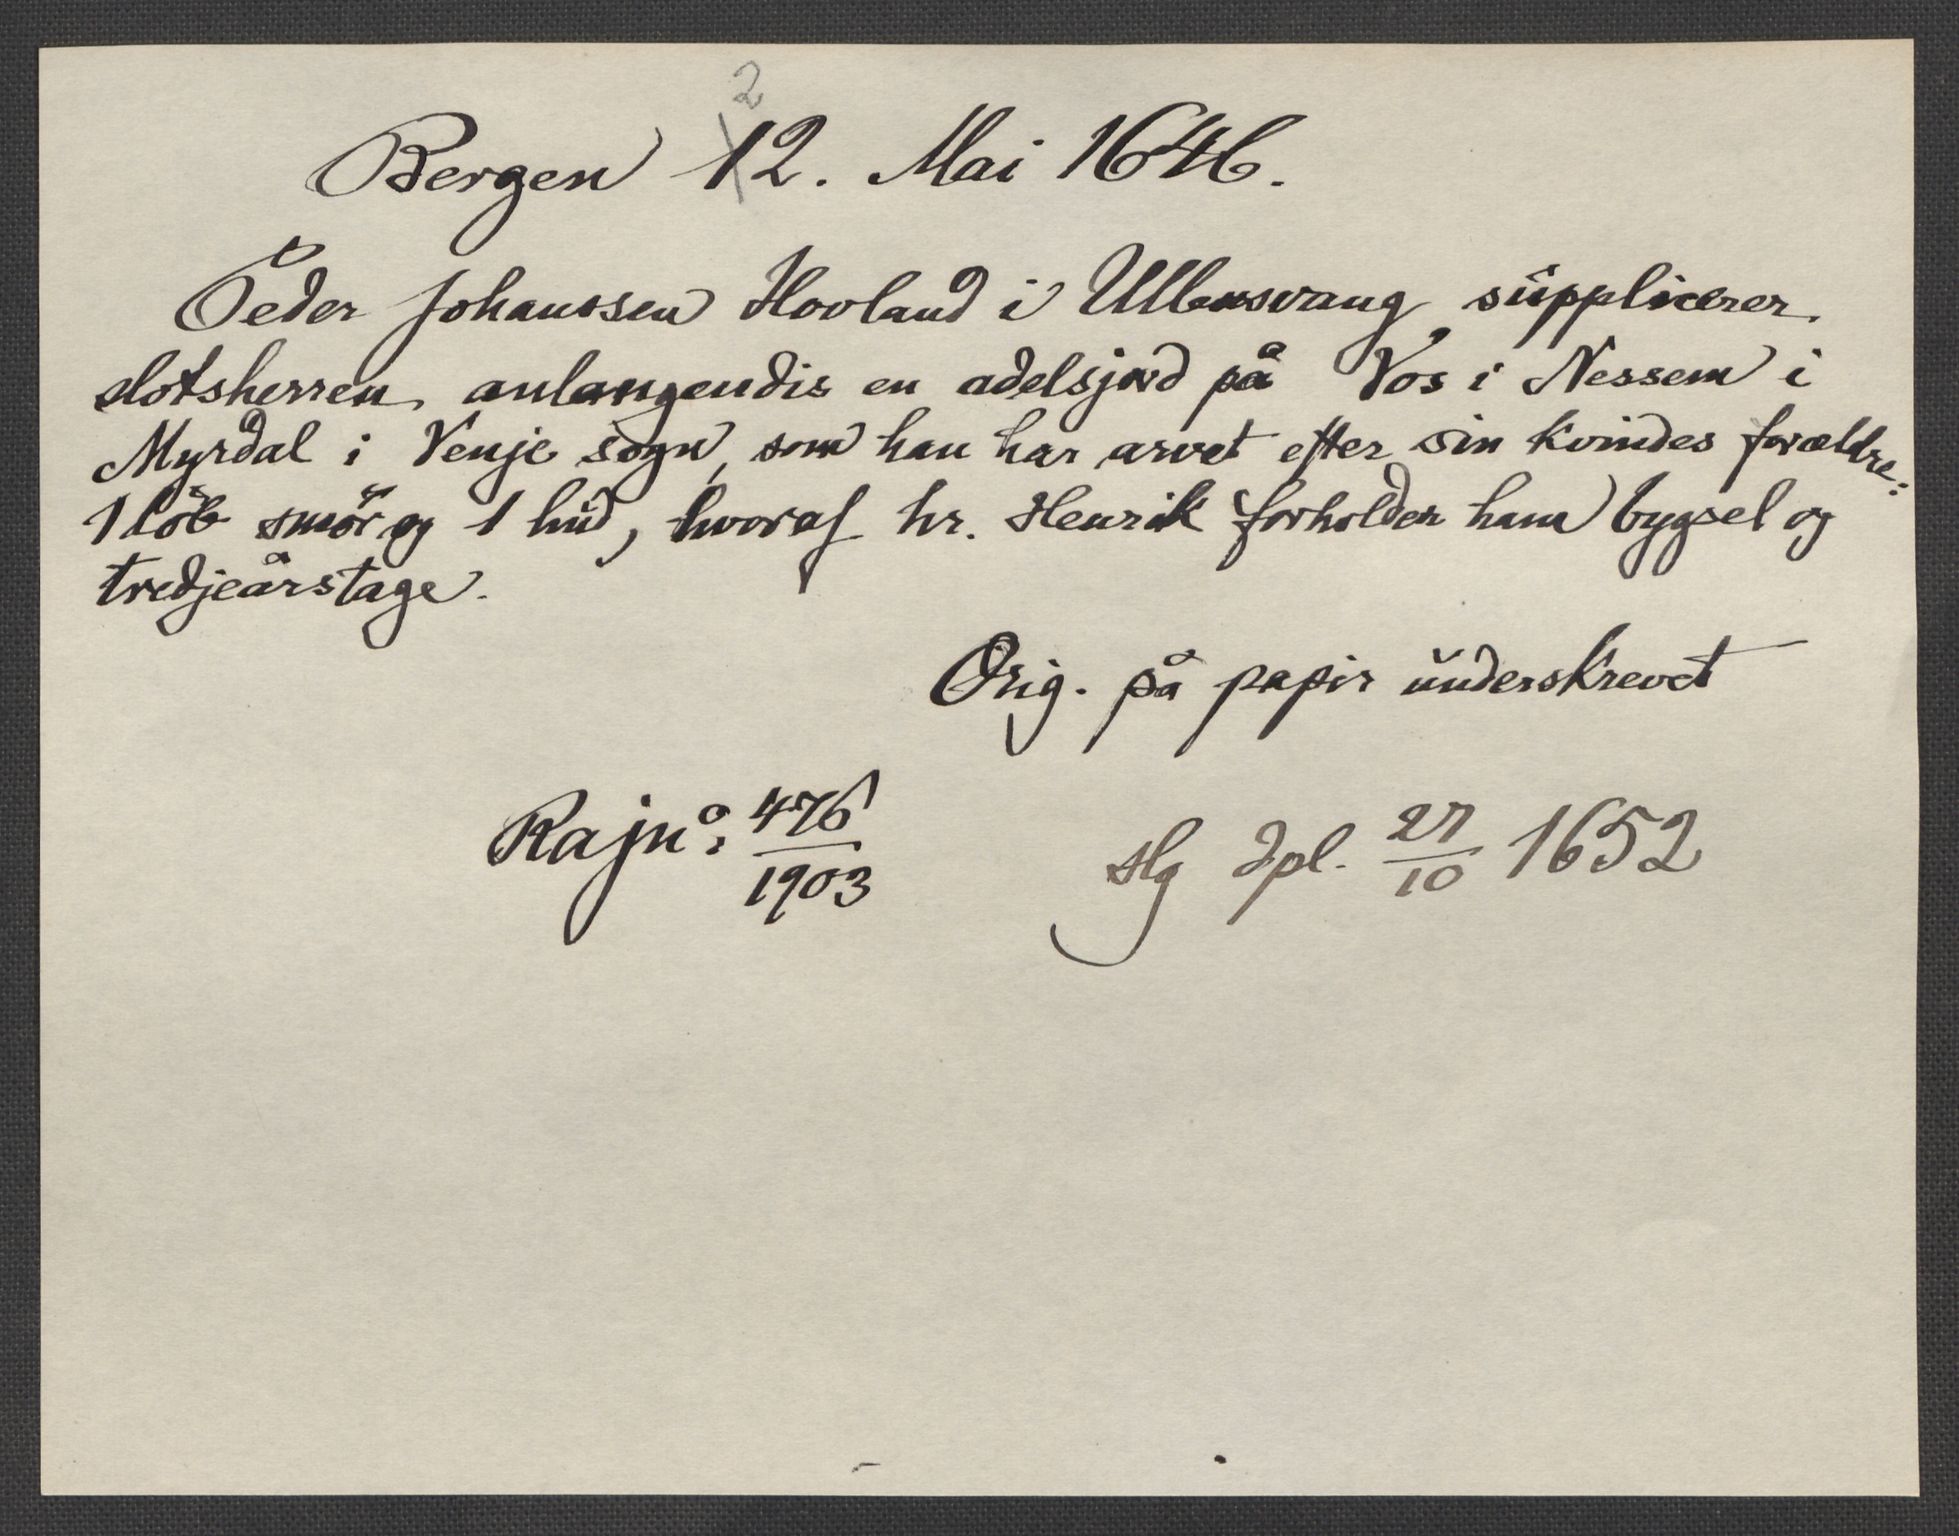 2
Bergen 12. Mai 1646.
Peder Johanssen Hovland i Ullensvang supplicerer
slotsherren anlangendis en adelsjord på Vos i Nessem i
Myrdal i Venje sogn, som han har arvet efter sin kvindes forældre:
1 löb smör og 1 hud, hvoraf hr. Henrik forholder ham bygsel og
tredjeårstage.
Orig. på papir underskrevet
Rajno: 476/1903
slg dpl. 27/10 1652